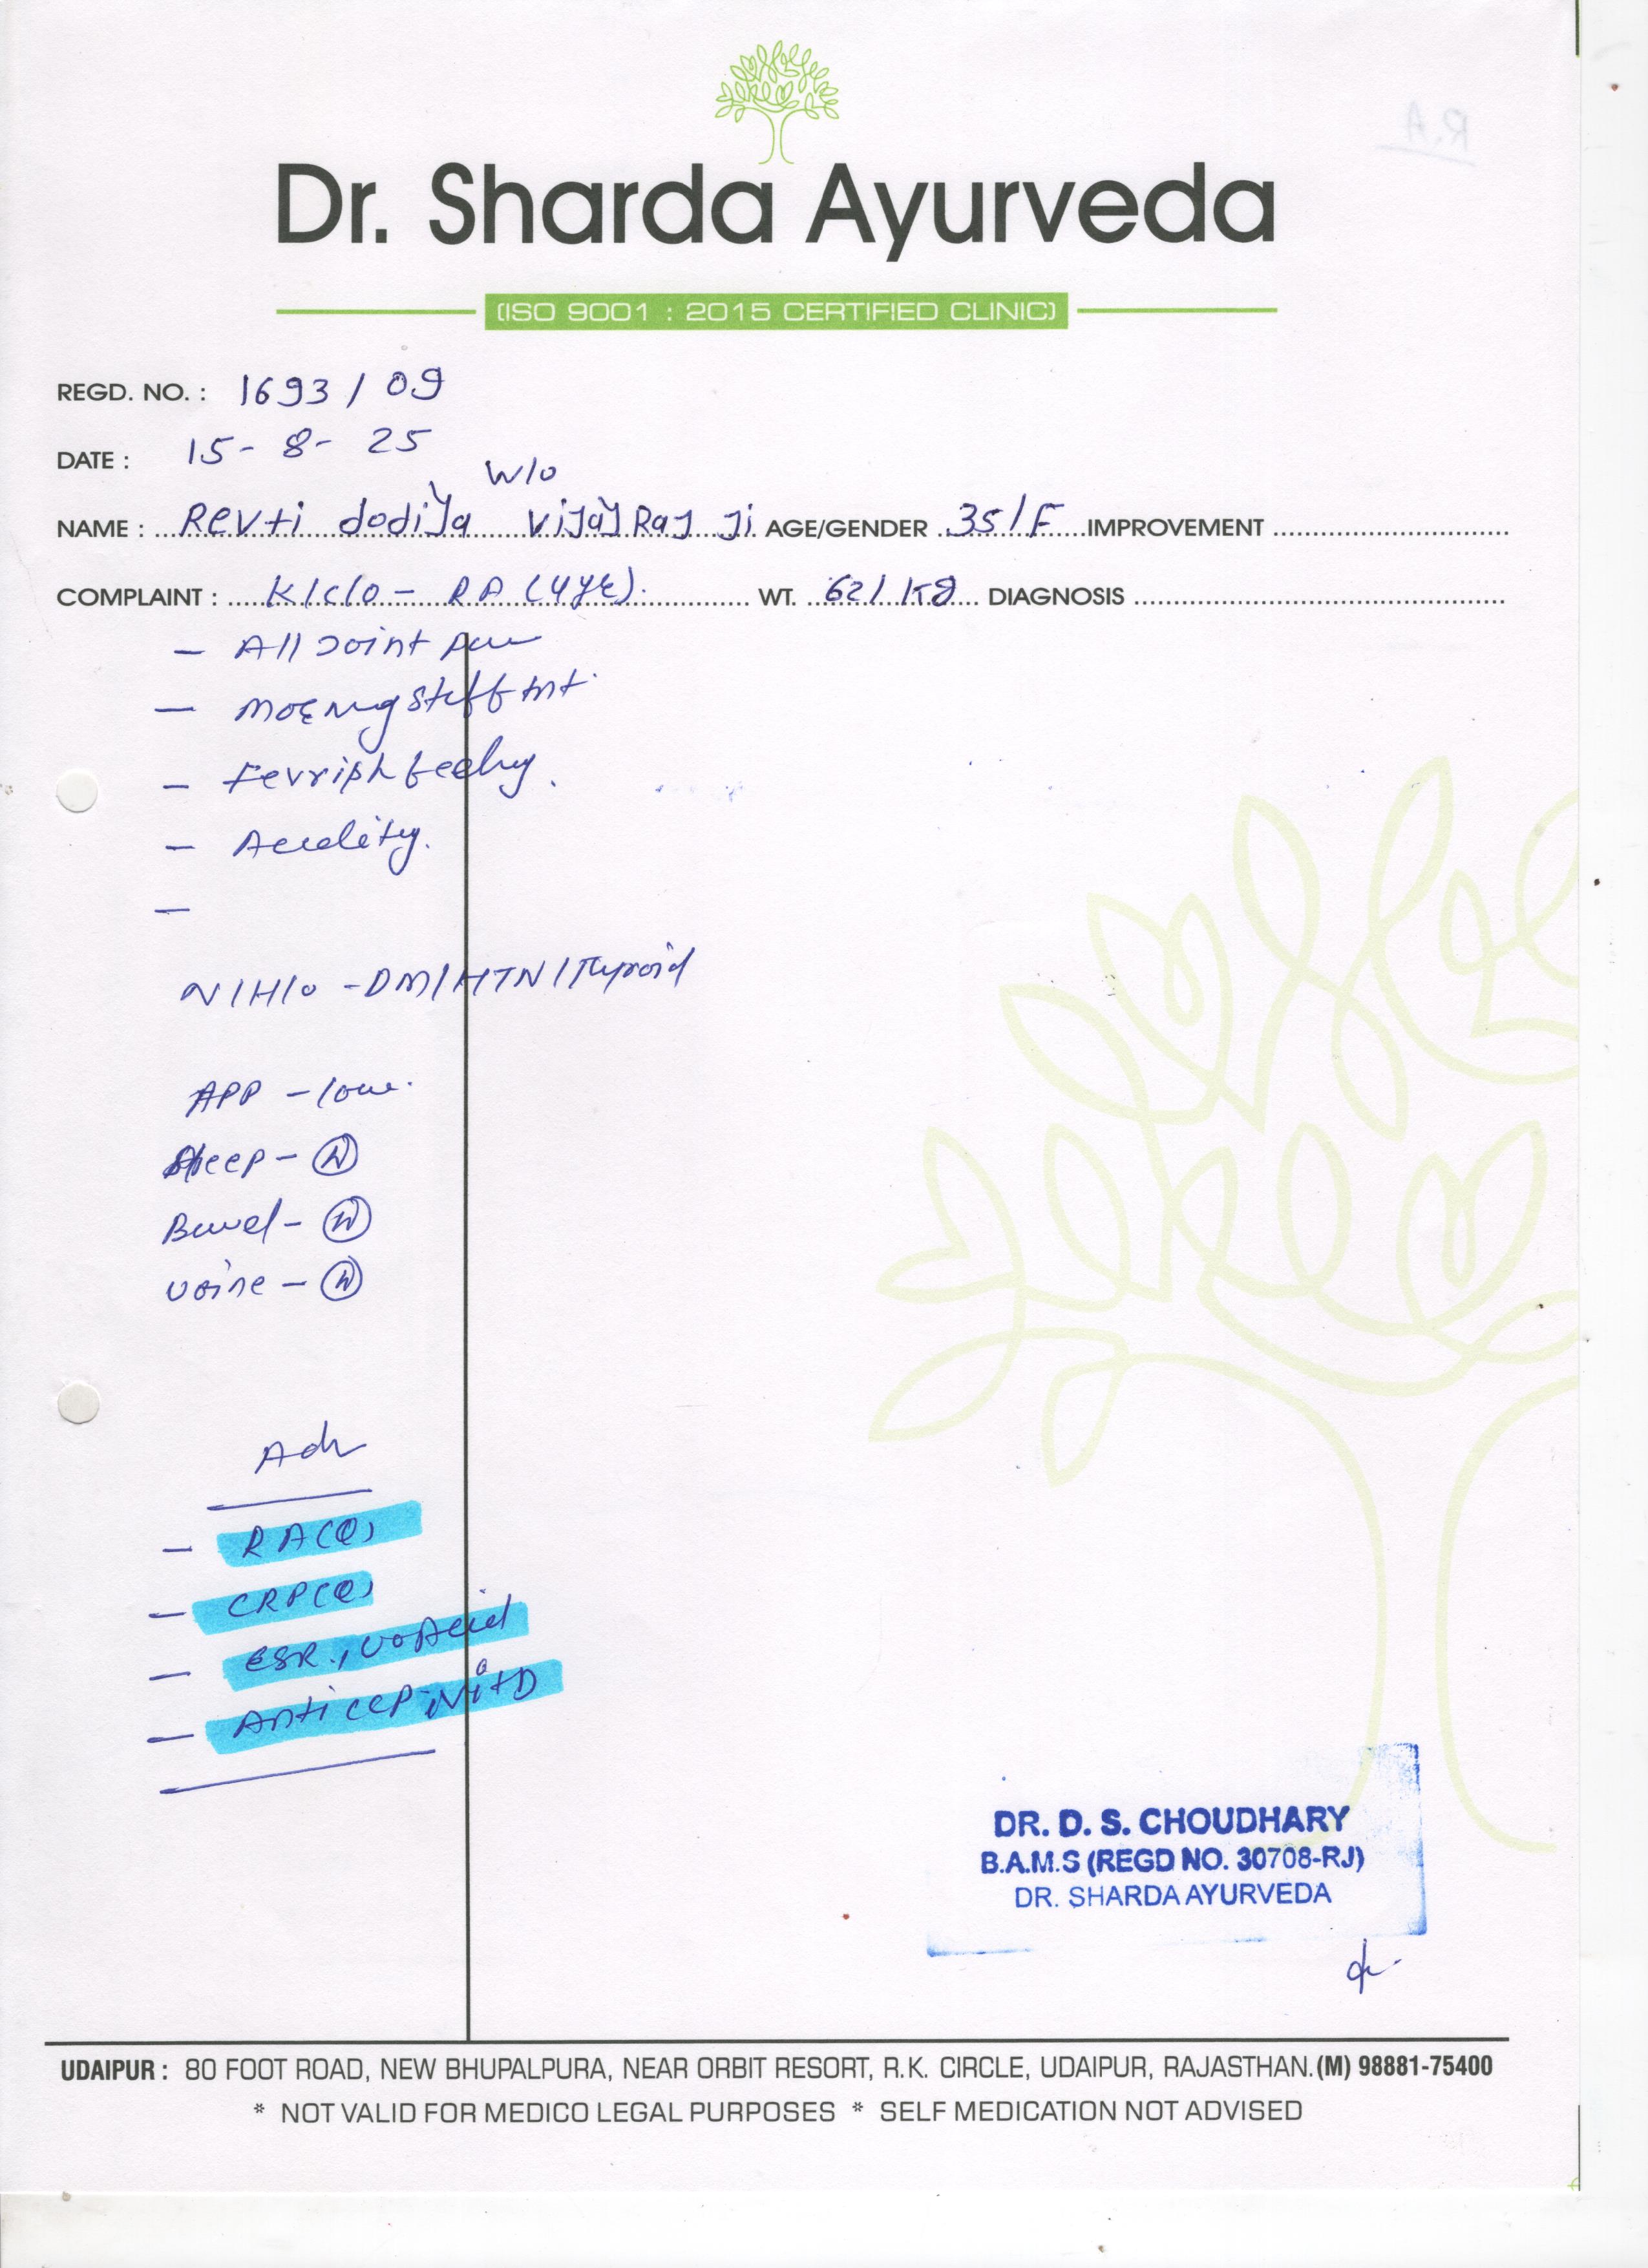 R.A
Dr. Sharda Ayurveda
(ISO 9001 : 2015 CERTIFIED CLINIC)
REGD. NO. : 1693 / 09
DATE : 15 - 8 - 25
W/o
NAME : Revti dodiya vijay Raj Ji AGE/GENDER 35/F IMPROVEMENT
COMPLAINT : K/c/o - RA (4yr). WT. 62/kg DIAGNOSIS
- All Joint
- Morning stiff
- Fevrish feeling.
- 
-
N/H/o - DM/HTN/Thyroid
APP - low.
Sleep - N
Bowel - N
Urine - N
Adv
- RA(Q)
- CRP(Q)
- ESR., Ur Acid
- Anti CCP, Vit D
DR. D. S. CHOUDHARY
B.A.M.S (REGD NO. 30708-RJ)
DR. SHARDA AYURVEDA
UDAIPUR : 80 FOOT ROAD, NEW BHUPALPURA, NEAR ORBIT RESORT, R.K. CIRCLE, UDAIPUR, RAJASTHAN. (M) 98881-75400
* NOT VALID FOR MEDICO LEGAL PURPOSES * SELF MEDICATION NOT ADVISED